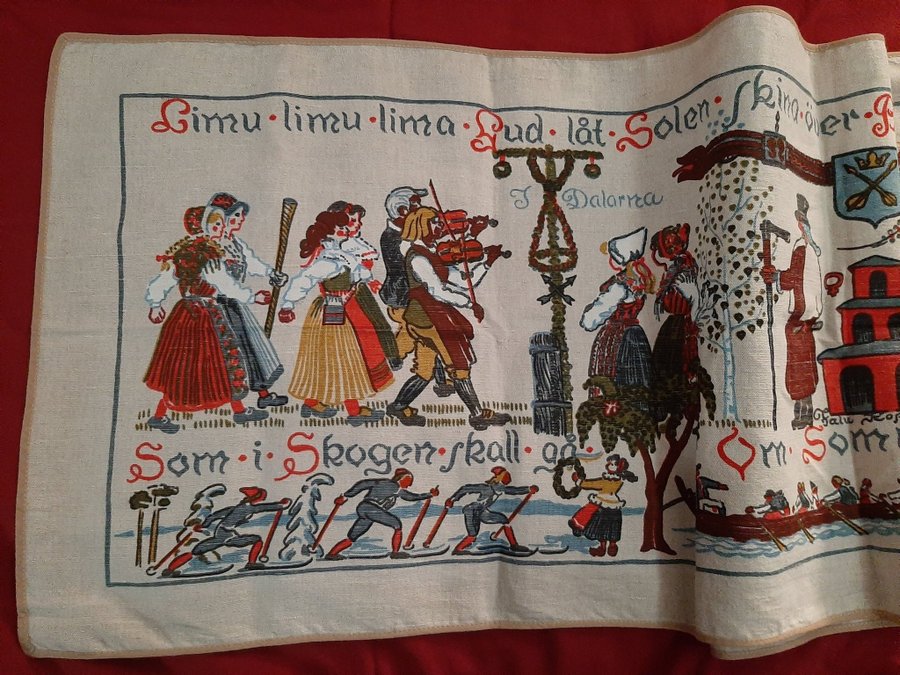 Limu · limu · lima · Gud · låt · Solen · skina · över
I Dalarna
Falu
Som · i · Skogen · skall · gå ·
Om · Som